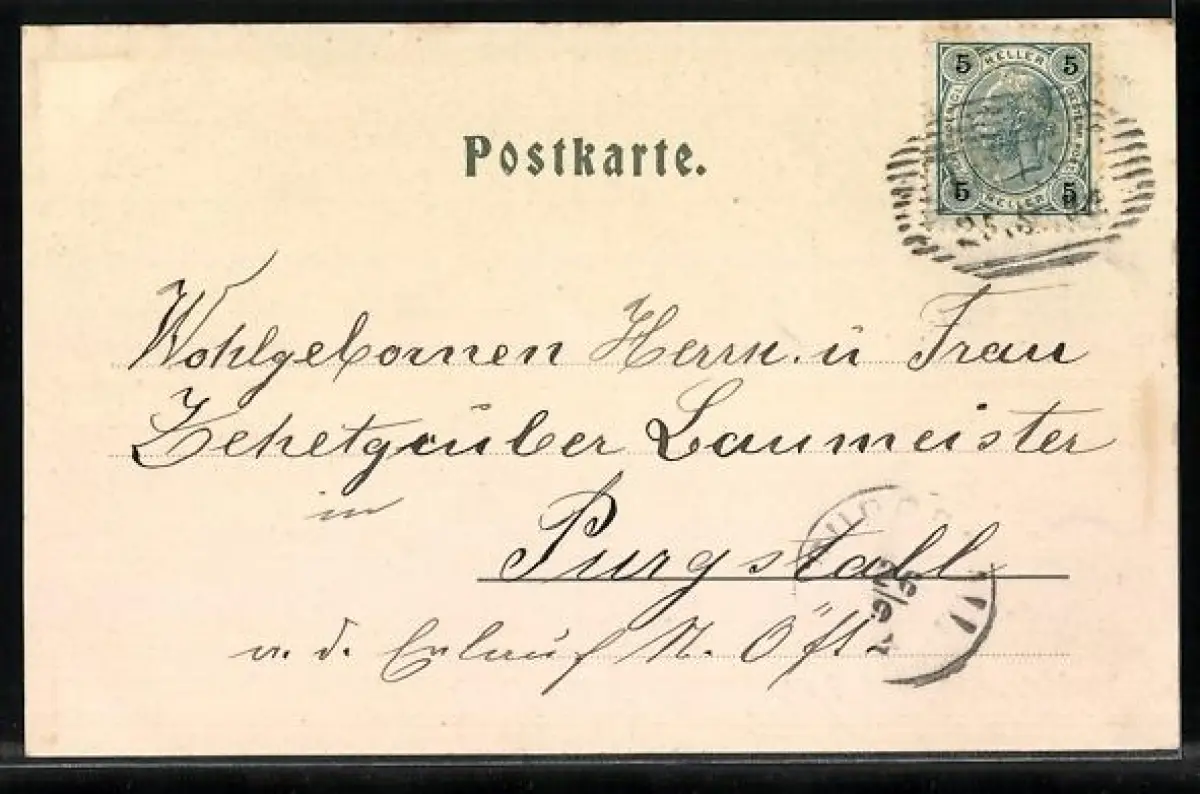 5 HELLER 5
5 HELLER 5
Postkarte.
25.5
Wohlgebornen Herrn. u Frau
Zehetgrüber Baumeister
in
Purgstall
26
a. d. Erlauf N. Öst.